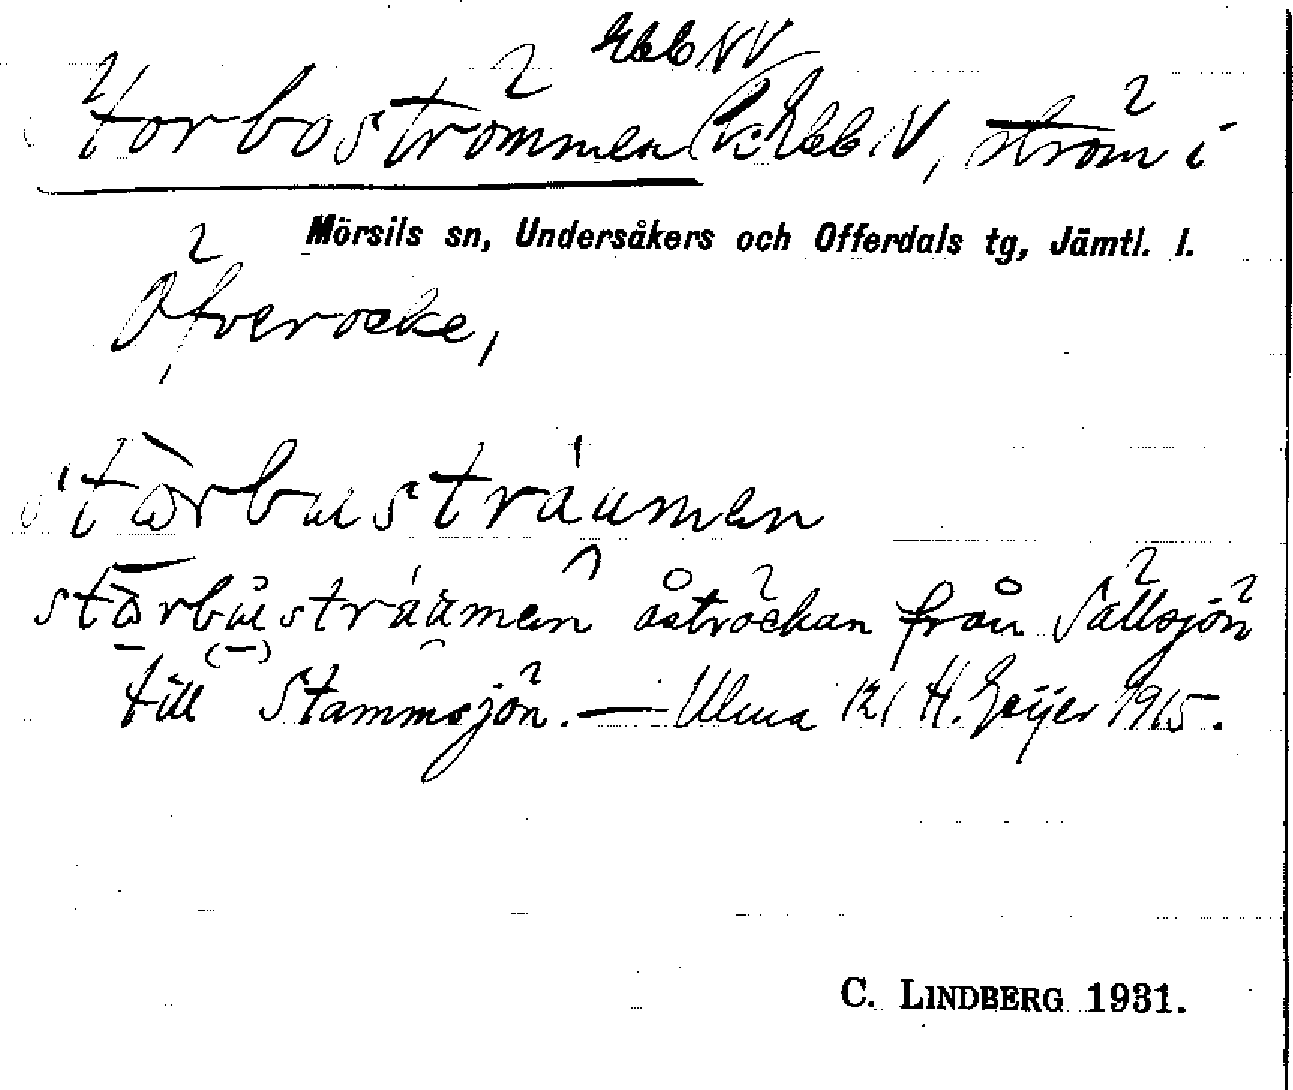 Storboströmmen Rc Ebb N, ström i
Mörsils sn, Undersåkers och Offerdals tg, Jämtl. l.
Öfverocke,
stòrbustráumen
stòrbůstráumen åsträckan från Sällsjön
till Stammsjön. — Ulma 121 H. Geijer 1915.
C. LINDBERG 1931.